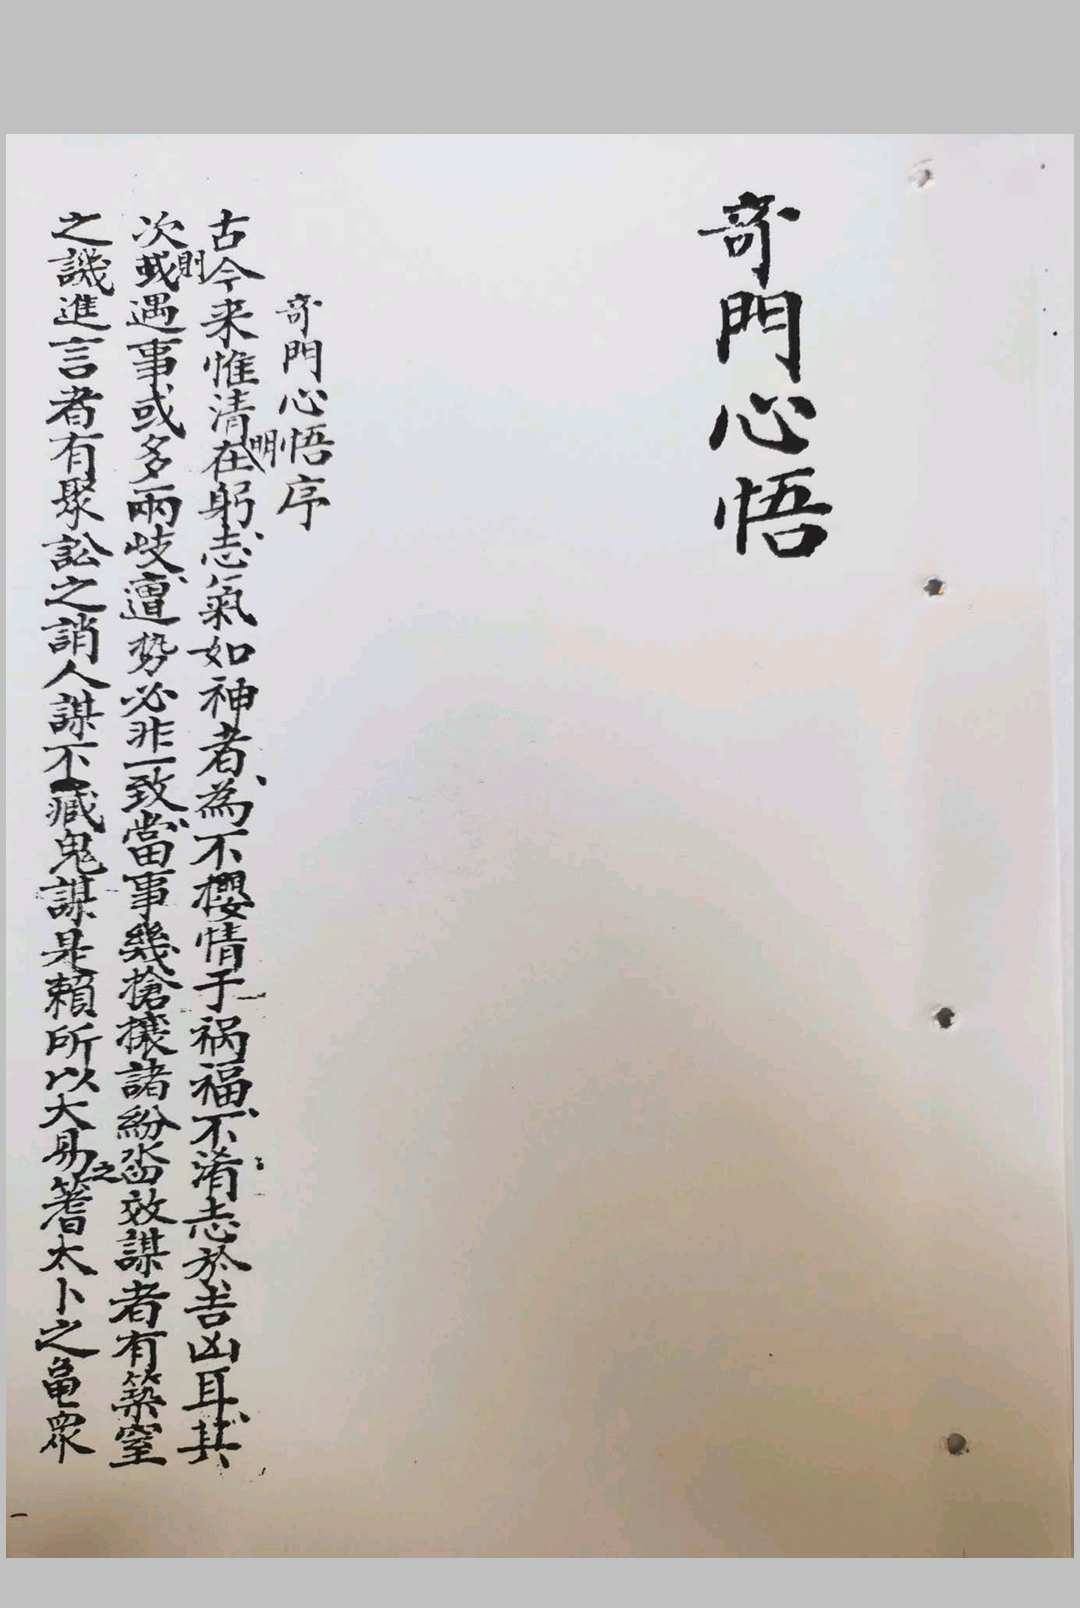 奇門心悟
奇門心悟序
古今来惟清明在躬志氣如神者為不櫻情于祸福不淆志於吉凶耳其
次則或遇事或多兩歧遭势必非一致當事幾搶攘諸紛沓效謀者有築室
之譏進言者有聚訟之誚人謀不臧鬼謀是賴所以大易之蓍太卜之龜眾